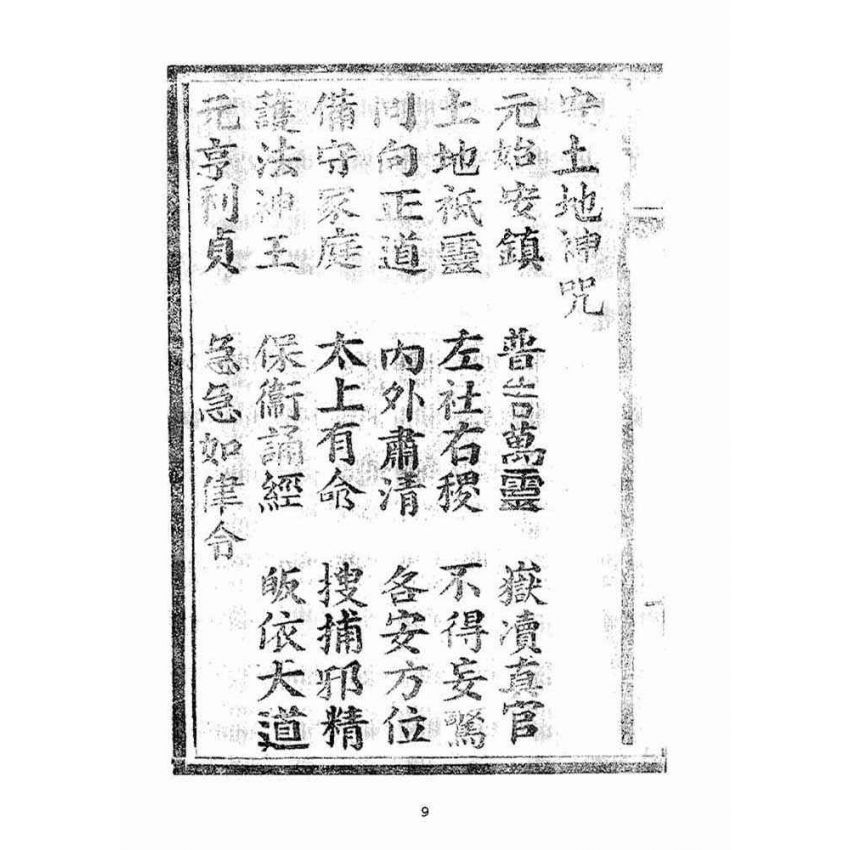 安土地神咒
元始安鎮 普告萬靈 嶽瀆真官
土地祇靈 左社右稷 不得妄驚
回向正道 內外肅清 各安方位
備守家庭 太上有命 搜捕邪精
護法神王 保衛誦經 皈依大道
元亨利貞 急急如律令
9